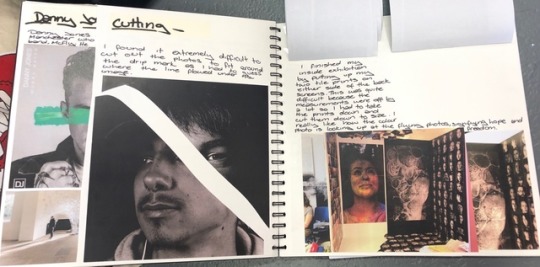 Danny Jo
Danny Jones
Manchester who
band, McFly. He
DJ
Cutting -
I found it extremely difficult to
cut out the photos to fit around
the drip mark as I had to guess
where the line flowed under the
image.
I finished my
inside exhibition
by putting up my
two tile prints on
either side of the back
screens. This was quite
difficult because the
measurements were off by
a lot so I had to take
the prints down and
cut them down to size. I
really like how the color
photo is looking up at the flying photos, signifying hope and
freedom.